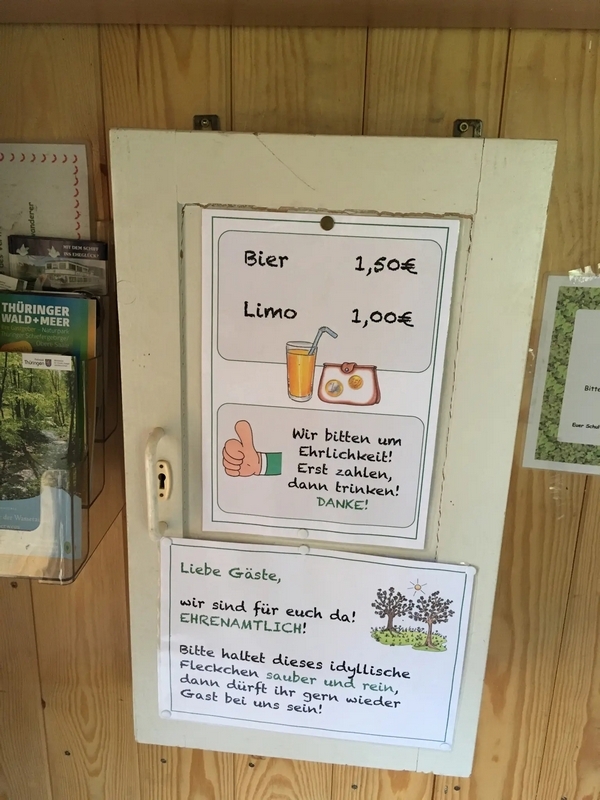 Bier 1,50€
Limo 1,00€
Wir bitten um
Ehrlichkeit!
Erst zahlen,
dann trinken!
DANKE!
Liebe Gäste,
wir sind für euch da!
EHRENAMTLICH!
Bitte haltet dieses idyllische
Fleckchen sauber und rein,
dann dürft ihr gern wieder
Gast bei uns sein!
MIT DEM SCHIFF
THÜRINGER
WALD+MEER
Thüringen
Bitte
Euer